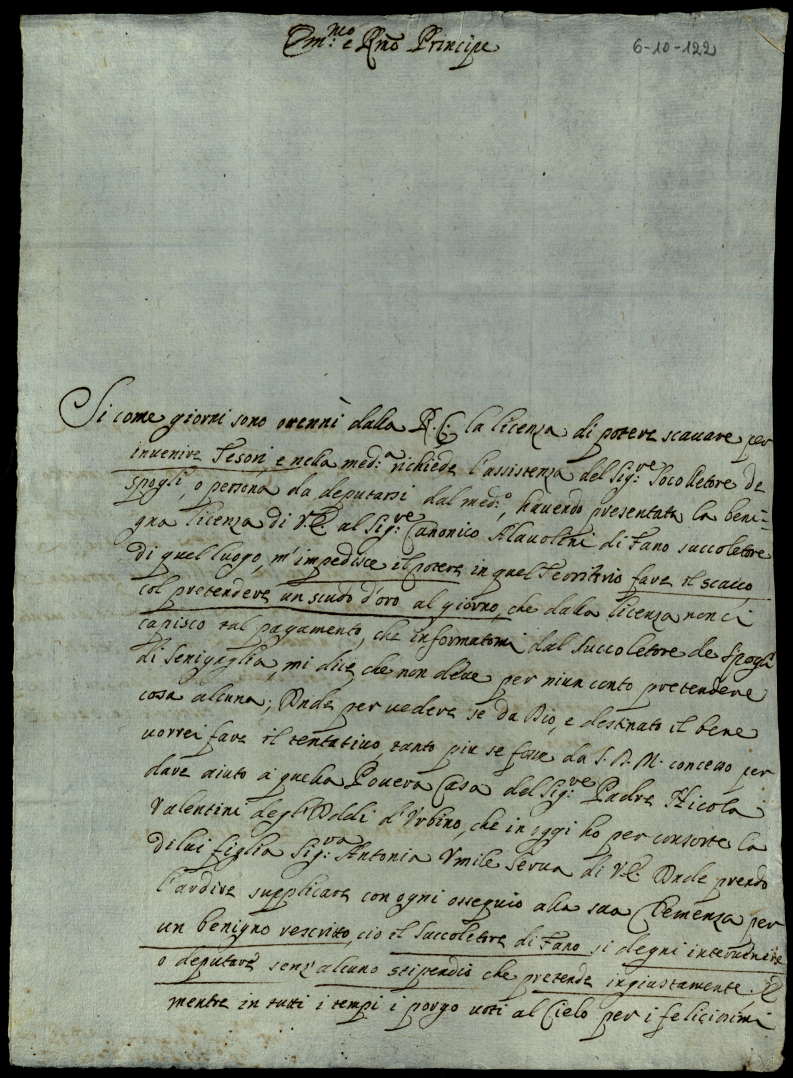 Em.mo e R.mo Principe
6-10-122
Si come giorni sono ottenni dalla R. C. la licenza di potere scavare per
invenire Tesori, e nella med.a richiede l'assistenza del Sig.re Socolletore de
spogli, o persona da deputarsi dal med.o, havendo presentata la beni=
gna licenza di V.E. al Sig.re Canonico Alavolini di Fano succoletore
di quel luogo, m'impedisce il potere in quel Territorio fare il scavo
col pretendere un scudo d'oro al giorno, che dalla licenza non ci
capisco tal pagamento, che informatomi dal Succoletore de spogli
di Senigaglia, mi dice che non deve per niun conto pretendere
cosa alcuna; Onde per vedere se da Dio, e destinato il bene
vorrei fare il tentativo, tanto piu se fosse da S. D. M. concesso per
dare aiuto à quella Povera Casa del Sig.re Padre Nicola
Valentini degl'Oddi d'Urbino, che in oggi ho per consorte la
di lui figlia Sig.ra Antonia Umile serva di V.E. Onde prendo
l'ardire supplicare con ogni ossequio alla sua Clemenza per
un benigno rescritto, ciò il Succoletore di Fano si degni intervenire
o deputare senz'alcuno stipendio che pretende ingiustamente. E
mentre in tutti i tempi i porgo voti al Cielo per i felicissimi